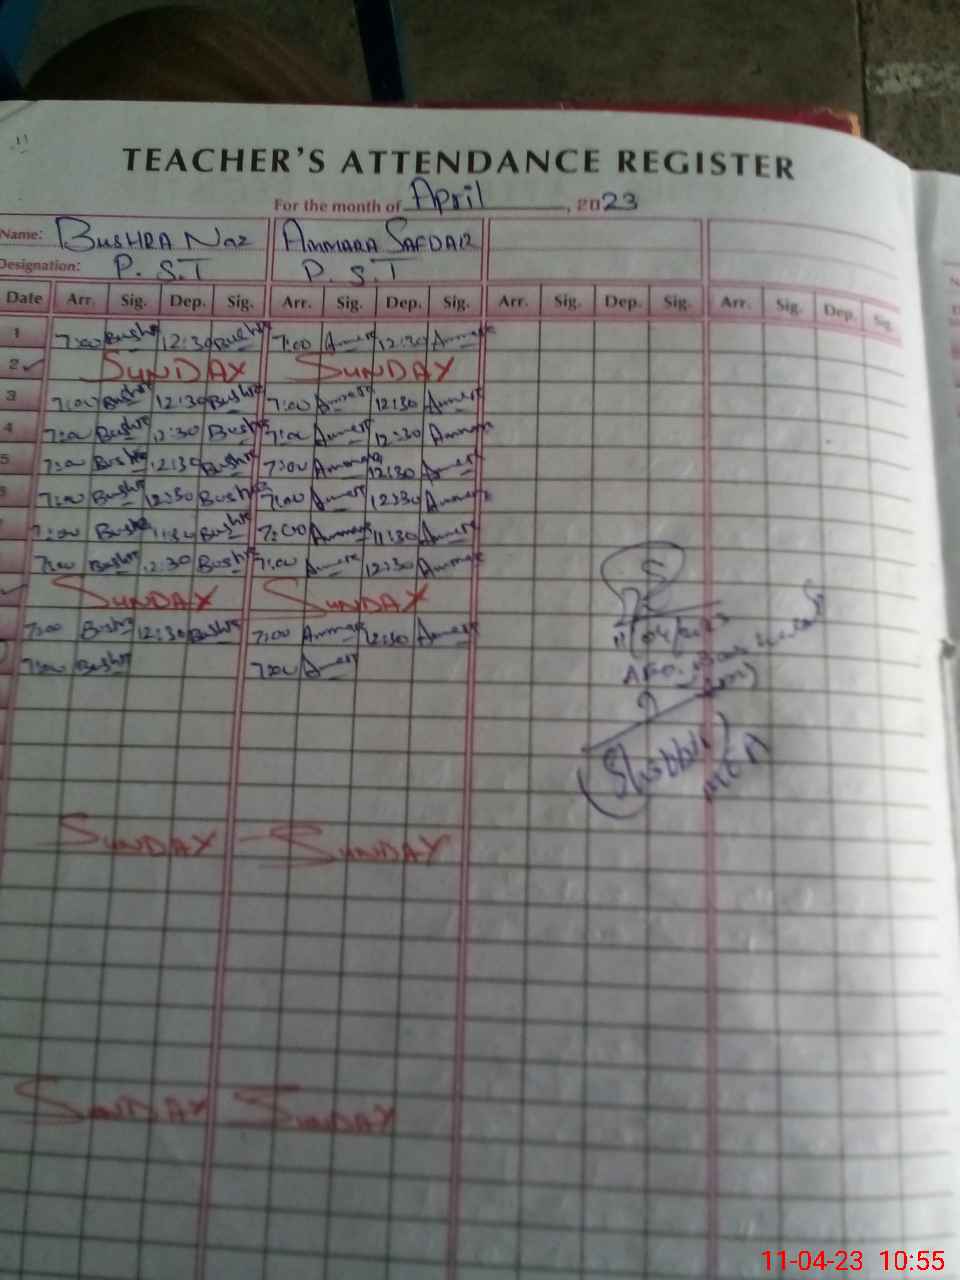 TEACHER'S ATTENDANCE REGISTER
For the month of April, 2023
Name: BUSHRA NAZ AMMARA SAFDAR
Designation: P.S.T P.S.T
Date Arr. Sig. Dep. Sig. Arr. Sig. Dep. Sig. Arr. Sig. Dep. Sig. Arr. Sig. Dep. Sig.
1 7:00 Bushra 12:30 Bushra 7:00 12:30
2 SUNDAY SUNDAY
3 7:00 Bushra 12:30 Bushra 7:00 12:30
4 7:00 Bushra 12:30 Bushra 7:00 12:30
5 7:00 Bushra 12:30 Bushra 7:00 Ammara 12:30
7:00 Bushra 12:30 Bushra 7:00 12:30
7:00 Bushra 11:30 Bushra 7:00 Ammara 11:30
7:00 Bushra 12:30 Bushra 7:00 12:30
SUNDAY SUNDAY
7:00 Bushra 12:30 Bushra 7:00 Ammara 12:30
7:00 Bushra 7:00
11/04/2023
MEA
SUNDAY SUNDAY
SUNDAY SUNDAY
11-04-23 10:55